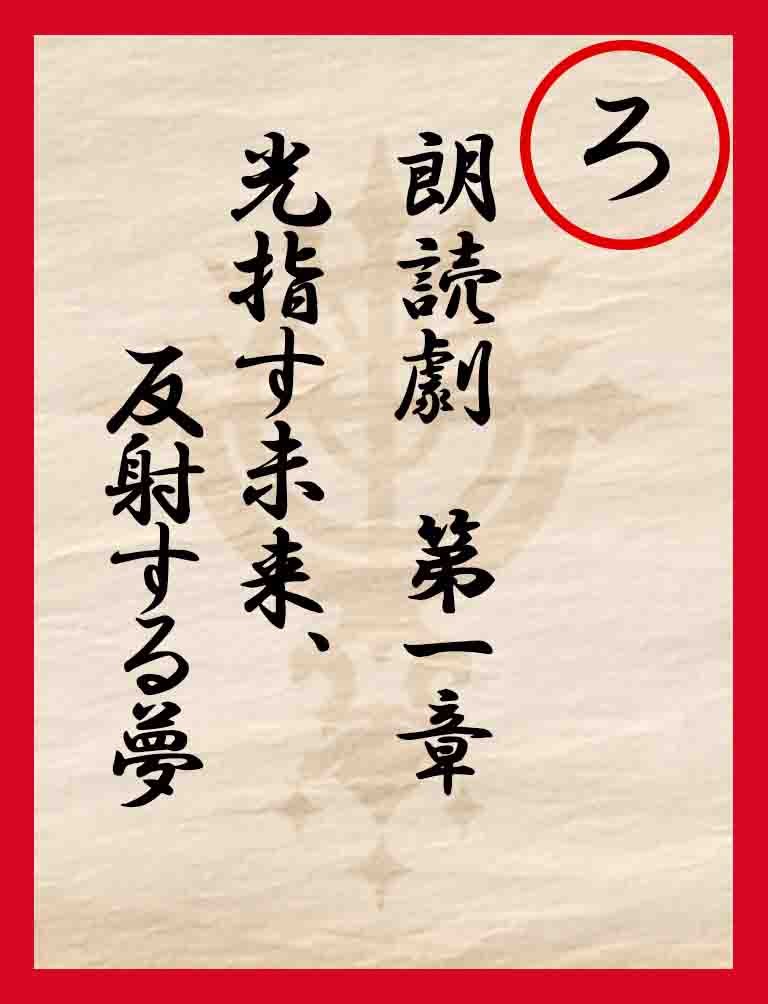 ろ
朗読劇　第一章
光指す未来、
反射する夢